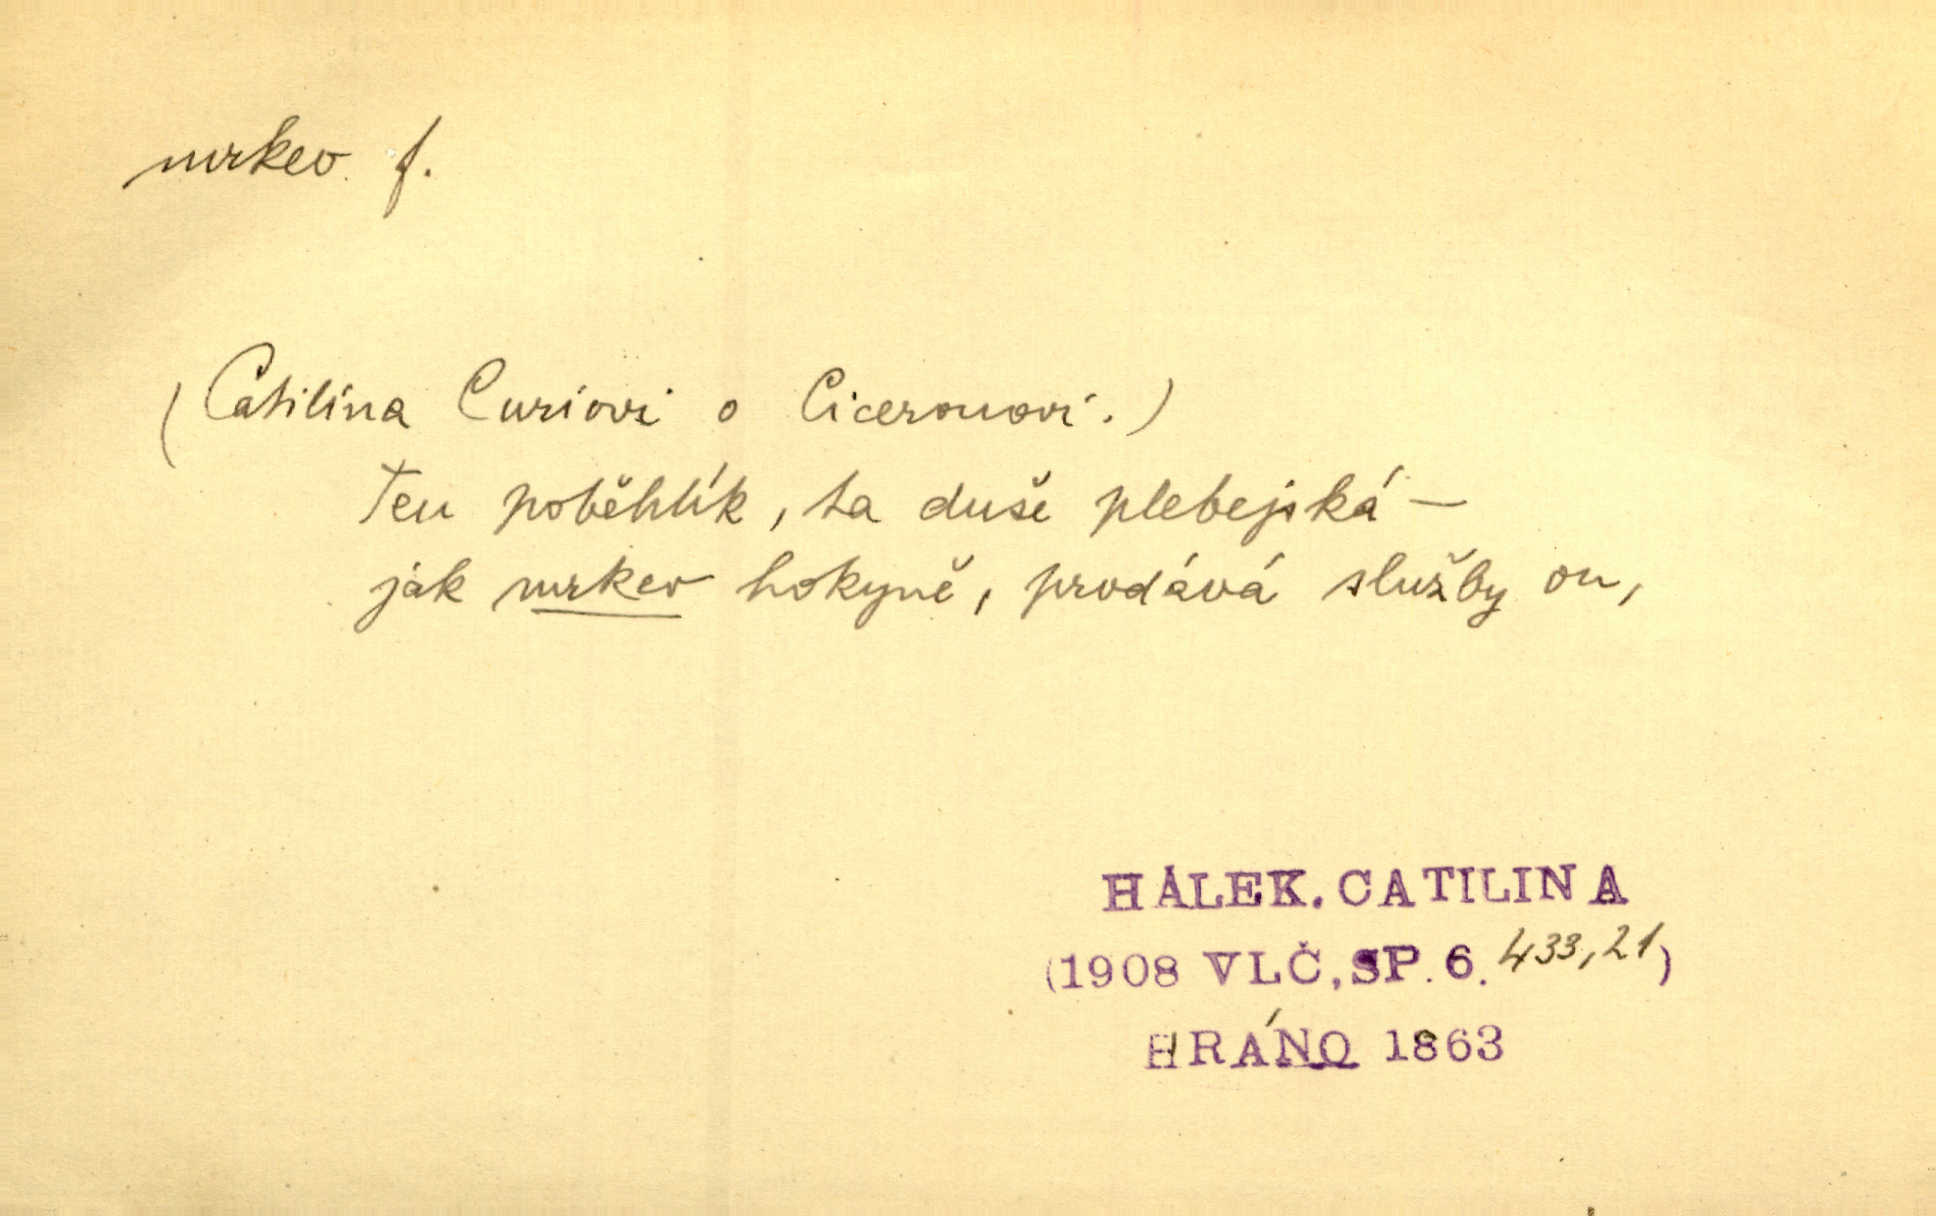 mrkev f.
(Catilina Curiovi o Ciceronovi.)
Ten poběhlík, ta duše plebejská —
jak mrkev hokyně, prodává služby on,
HÁLEK. CATILINA
(1908 VLČ, SP. 6. 433,21)
HRÁNO 1863